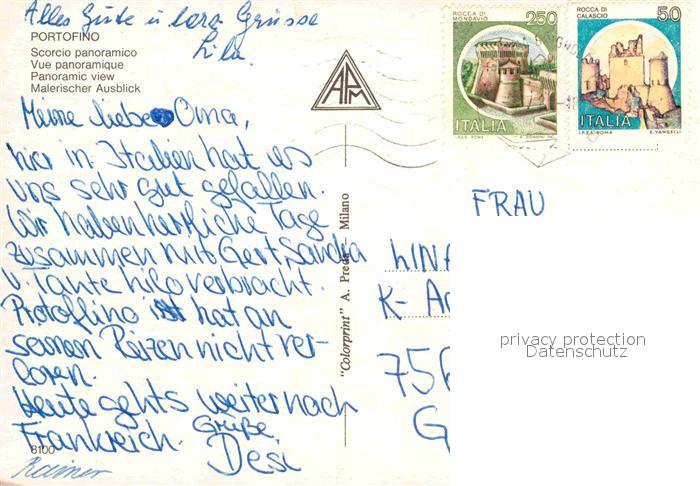 Alles Gute u. liebe Grüsse
Lila.
PORTOFINO
Scorcio panoramico
Vue panoramique
Panoramic view
Malerischer Ausblick
Meine liebe Oma,
hier in Italien hat es
uns sehr gut gefallen.
Wir haben herrliche Tage
zusammen mit Gert, Sandra
u. Tante Lilo verbracht.
Protoflino hat an
seinen Reizen nicht ver-
loren.
Heute gehts weiter nach
Frankreich.
Grüße
Desi
Rainer
8100
"Colorprint" A. Preda Milano
APM
ROCCA DI
MONDAVIO
250
ITALIA
I.P.Z.S. ROMA
ROCCA DI
CALASCIO
50
ITALIA
I.P.Z.S. ROMA
E. VANGELLI
FRAU
LINA
K- A
756
G
privacy protection
Datenschutz